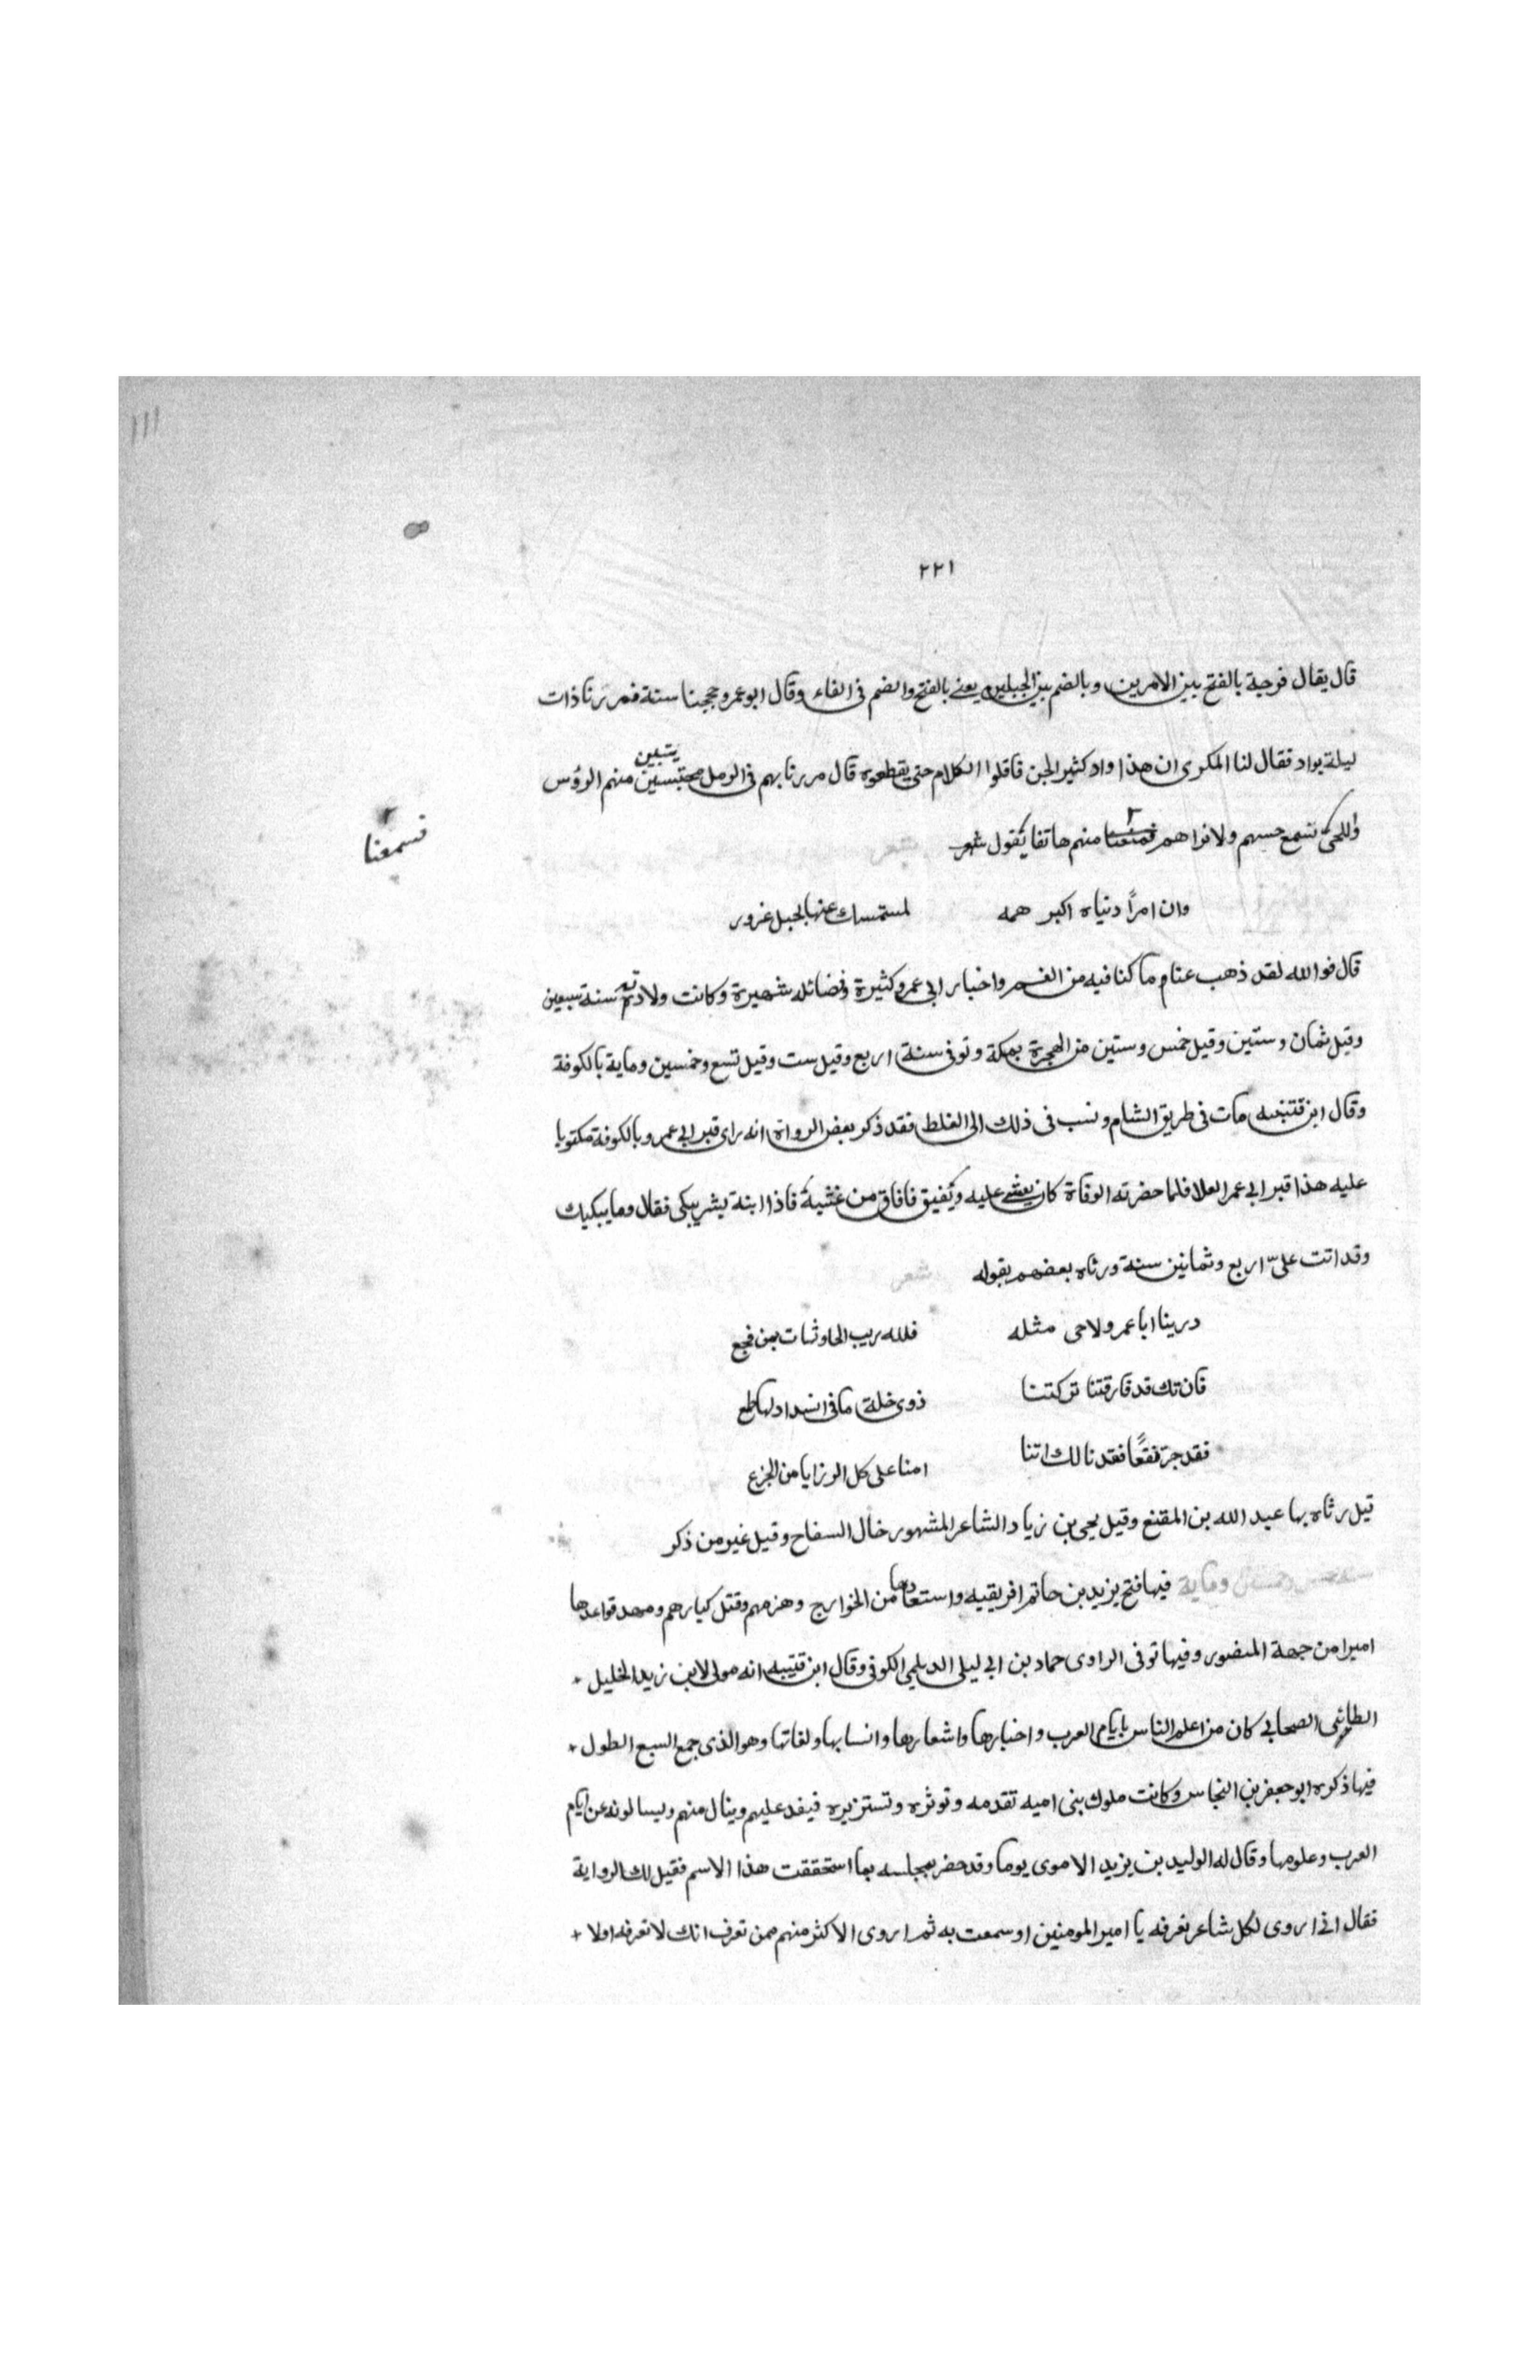 ١١١
٢٢١
قال يقال فرجة بالفتح بين الامرين وبالضم بين الجبلين يعنى بالفتح والضم فى الفاء وقال ابو عمرو حججنا سنة فمررنا ذات
ليلة بواد فقال لنا المكرى ان هذا واد كثير الجن فاقلوا الكلام حتى يقطعوه قال مررنا بهم فى الرمل محتبسين يتبين منهم الروس
واللحى نسمع حسهم ولا نراهم فمنعنا منهم هاتفا يقول شعر
فسمعنا
وان امرًا دنياه اكبر همه لمستمسك عنها بحبل غرور
قال فوالله لقد ذهب عنا ما كنا فيه من الغم واخبار ابى عمرو كثيرة وفضائله شهيرة وكانت ولادته سنة سبعين
وقيل ثمان وستين وقيل خمس وستين من الهجرة بمكة وتوفى سنة اربع وقيل ست وقيل تسع وخمسين وماية بالكوفة
وقال ابن قتيبه مات فى طريق الشام ونسب فى ذلك الى الغلط فقد ذكر بعض الرواة انه راى قبر ابى عمرو بالكوفة مكتوبا
عليه هذا قبر ابى عمر العلا فلما حضرته الوفاة كان يغشى عليه ويفيق فافاق من غشية فاذا ابنة بشر يبكى فقال وما يبكيك
وقد اتت علىّ اربع وثمانين سنة ورثاه بعضهم بقوله شعر
درينا ابا عمر ولا حى مثله فلله ريب الحاوثات بمن فجع
فان تك قد فارقتنا تركتنا ذوى خلة ما فى انسداد لها طمع
فقد جر نفعًا فقدنا لك اننا امنا على كل الرزايا من الجزع
قيل رثاه بها عبد الله بن المقنع وقيل يحيى بن زياد الشاعر المشهور خال السفاح وقيل غير من ذكر
سنة خمس وخمسين وماية فيها فتح يزيد بن حاتم افريقيه واستعادها من الخوارج وهزمهم وقتل كبارهم ومهد قواعدها
اميرا من جهة المنصور وفيها توفى الراوى حماد بن ابى ليلى الديلمى الكوفى وقال ابن قتيبه انه مولى لابن زيد الخليل +
الطائى الصحابى كان من اعلم الناس بايام العرب واخبارها واشعارها وانسابها ولغاتها وهو الذى جمع السبع الطول +
فيها ذكره ابو جعفر بن النحاس وكانت ملوك بنى اميه تقدمه وتوثره وتستزيره فيفد عليهم وينال منهم ويسالونه عن ايام
العرب وعلومها وقال له الوليد بن يزيد الاموى يوما وقد حضر بمجلسه بما استحققت هذا الاسم فقيل لك الرواية
فقال انى اروى لكل شاعر تعرفه يا امير المومنين او سمعت به ثم اروى الاكثر منهم ممن تعرف انك لا تعرفه اولا +